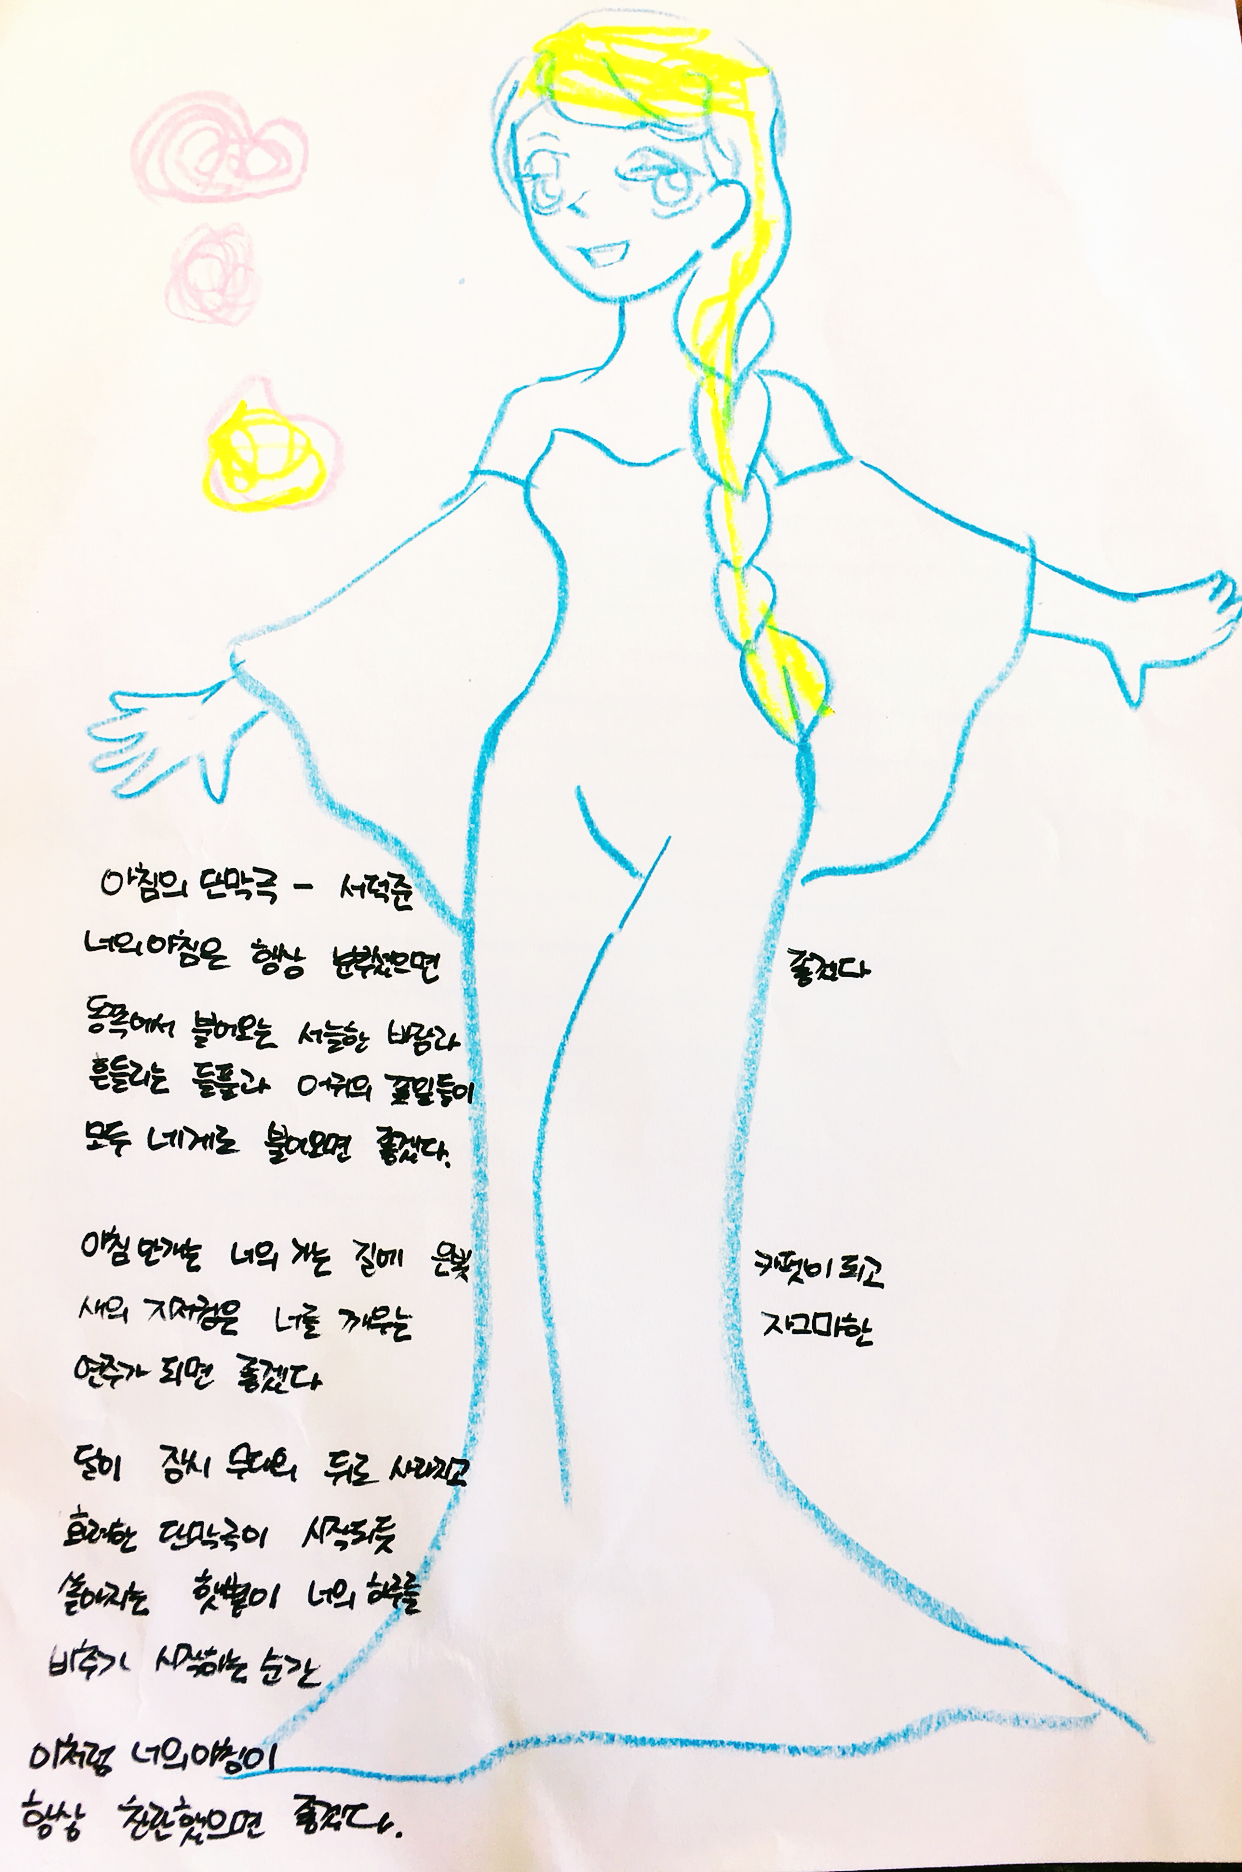 아침의 단막극 - 서덕준
너의 아침은 항상 분부셨으면 좋겠다
동쪽에서 불어오는 서늘한 바람과
흔들리는 들풀과 어귀의 꽃잎들이
모두 네게로 불어오면 좋겠다.
아침 안개는 너의 가는 길에 은빛 카펫이 되고
새의 지저귐은 너를 깨우는 자그마한
연주가 되면 좋겠다
달이 잠시 무대의 뒤로 사라지고
화려한 단막극이 시작되듯
쏟아지는 햇볕이 너의 하루를
비추기 시작하는 순간
이처럼 너의 아침이
항상 찬란했으면 좋겠다.